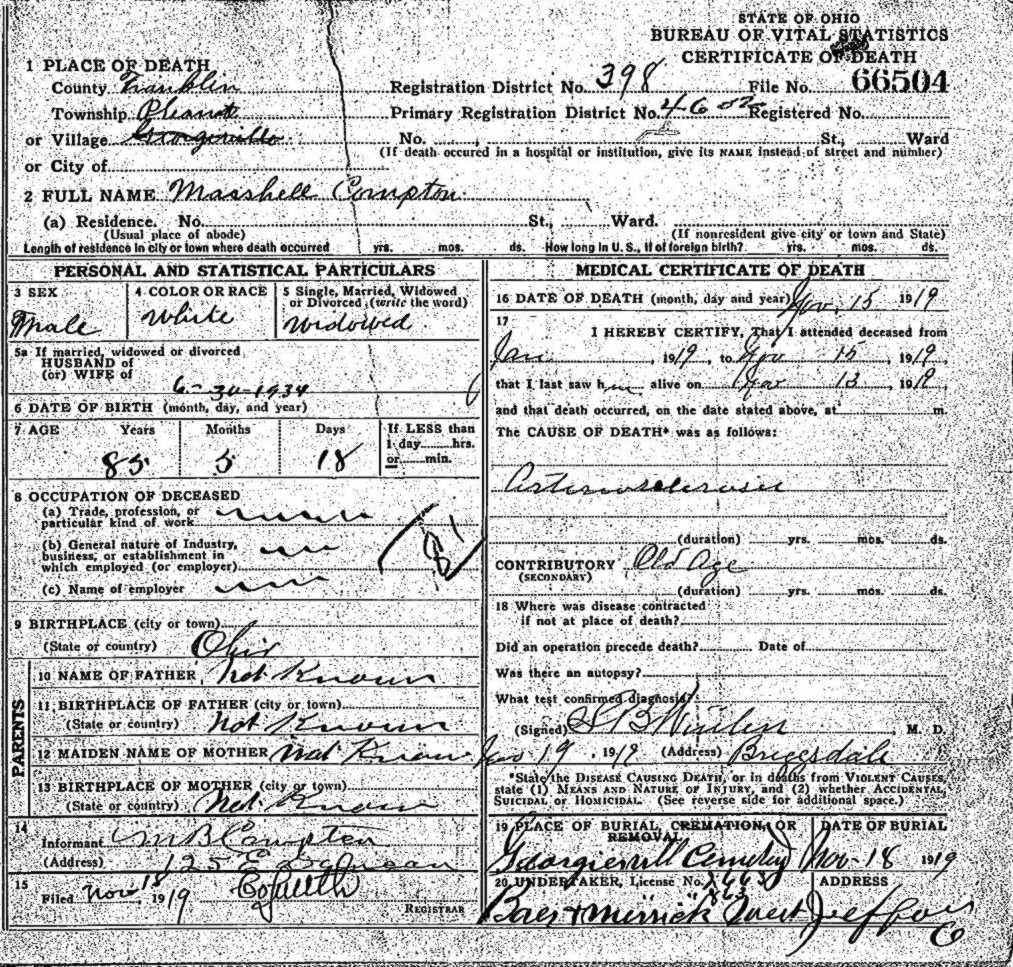 STATE OF OHIO
BUREAU OF VITAL STATISTICS
CERTIFICATE OF DEATH
1 PLACE OF DEATH
County Franklin Registration District No. 398 File No. 66504
Township Pleasant Primary Registration District No. 4602 Registered No.
or Village No. St., Ward
(If death occured in a hospital or institution, give its NAME instead of street and number)
or City of
2 FULL NAME Masshell Compton
(a) Residence. No. St., Ward.
(Usual place of abode) (If nonresident give city or town and State)
Length of residence in city or town where death occurred yrs. mos. ds. How long in U. S., if of foreign birth? yrs. mos. ds.
PERSONAL AND STATISTICAL PARTICULARS
3 SEX 4 COLOR OR RACE 5 Single, Married, Widowed
or Divorced, (write the word)
Male White Widowed
5a If married, widowed or divorced
HUSBAND of
(or) WIFE of
6-30-1934
6 DATE OF BIRTH (month, day, and year)
7 AGE Years Months Days If LESS than
1 day hrs.
85 5 18 or min.
8 OCCUPATION OF DECEASED
(a) Trade, profession, or
particular kind of work
(b) General nature of Industry,
business, or establishment in
which employed (or employer)
(c) Name of employer
81
9 BIRTHPLACE (city or town)
(State or country) Ohio
PARENTS
10 NAME OF FATHER Not Known
11 BIRTHPLACE OF FATHER (city or town)
(State or country) Not Known
12 MAIDEN NAME OF MOTHER Not Know
13 BIRTHPLACE OF MOTHER (city or town)
(State or country) Not Know
14
Informant M B Compton
(Address) 125 E
15
Filed Nov 18 1919
REGISTRAR
MEDICAL CERTIFICATE OF DEATH
16 DATE OF DEATH (month, day and year) Nov. 15 1919
17
I HEREBY CERTIFY, That I attended deceased from
Jan , 1919, to Nov 15, 1919,
that I last saw him alive on Nov 13, 1919
and that death occurred, on the date stated above, at m.
The CAUSE OF DEATH* was as follows:
Arteriosclerosis
(duration) yrs. mos. ds.
CONTRIBUTORY Old Age
(SECONDARY)
(duration) yrs. mos. ds.
18 Where was disease contracted
if not at place of death?
Did an operation precede death? Date of
Was there an autopsy?
What test confirmed diagnosis?
(Signed) M. D.
Nov 19, 1919 (Address) Briggsdale
*State the DISEASE CAUSING DEATH, or in deaths from VIOLENT CAUSES,
state (1) MEANS AND NATURE OF INJURY, and (2) whether ACCIDENTAL,
SUICIDAL OR HOMICIDAL. (See reverse side for additional space.)
19 PLACE OF BURIAL, CREMATION, OR
REMOVAL DATE OF BURIAL
Cemetery Nov-18 1919
20 UNDERTAKER, License No. ADDRESS
Baer & Merrick West Jefferson